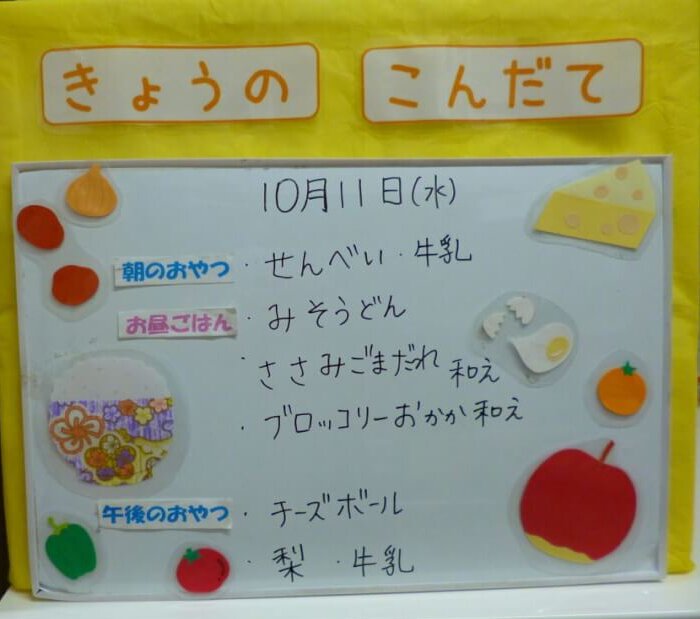 きょうの こんだて
10月11日(水)
朝のおやつ ・せんべい ・牛乳
お昼ごはん ・みそうどん
・ささみごまだれ和え
・ブロッコリーおかか和え
午後のおやつ ・チーズボール
・梨 ・牛乳